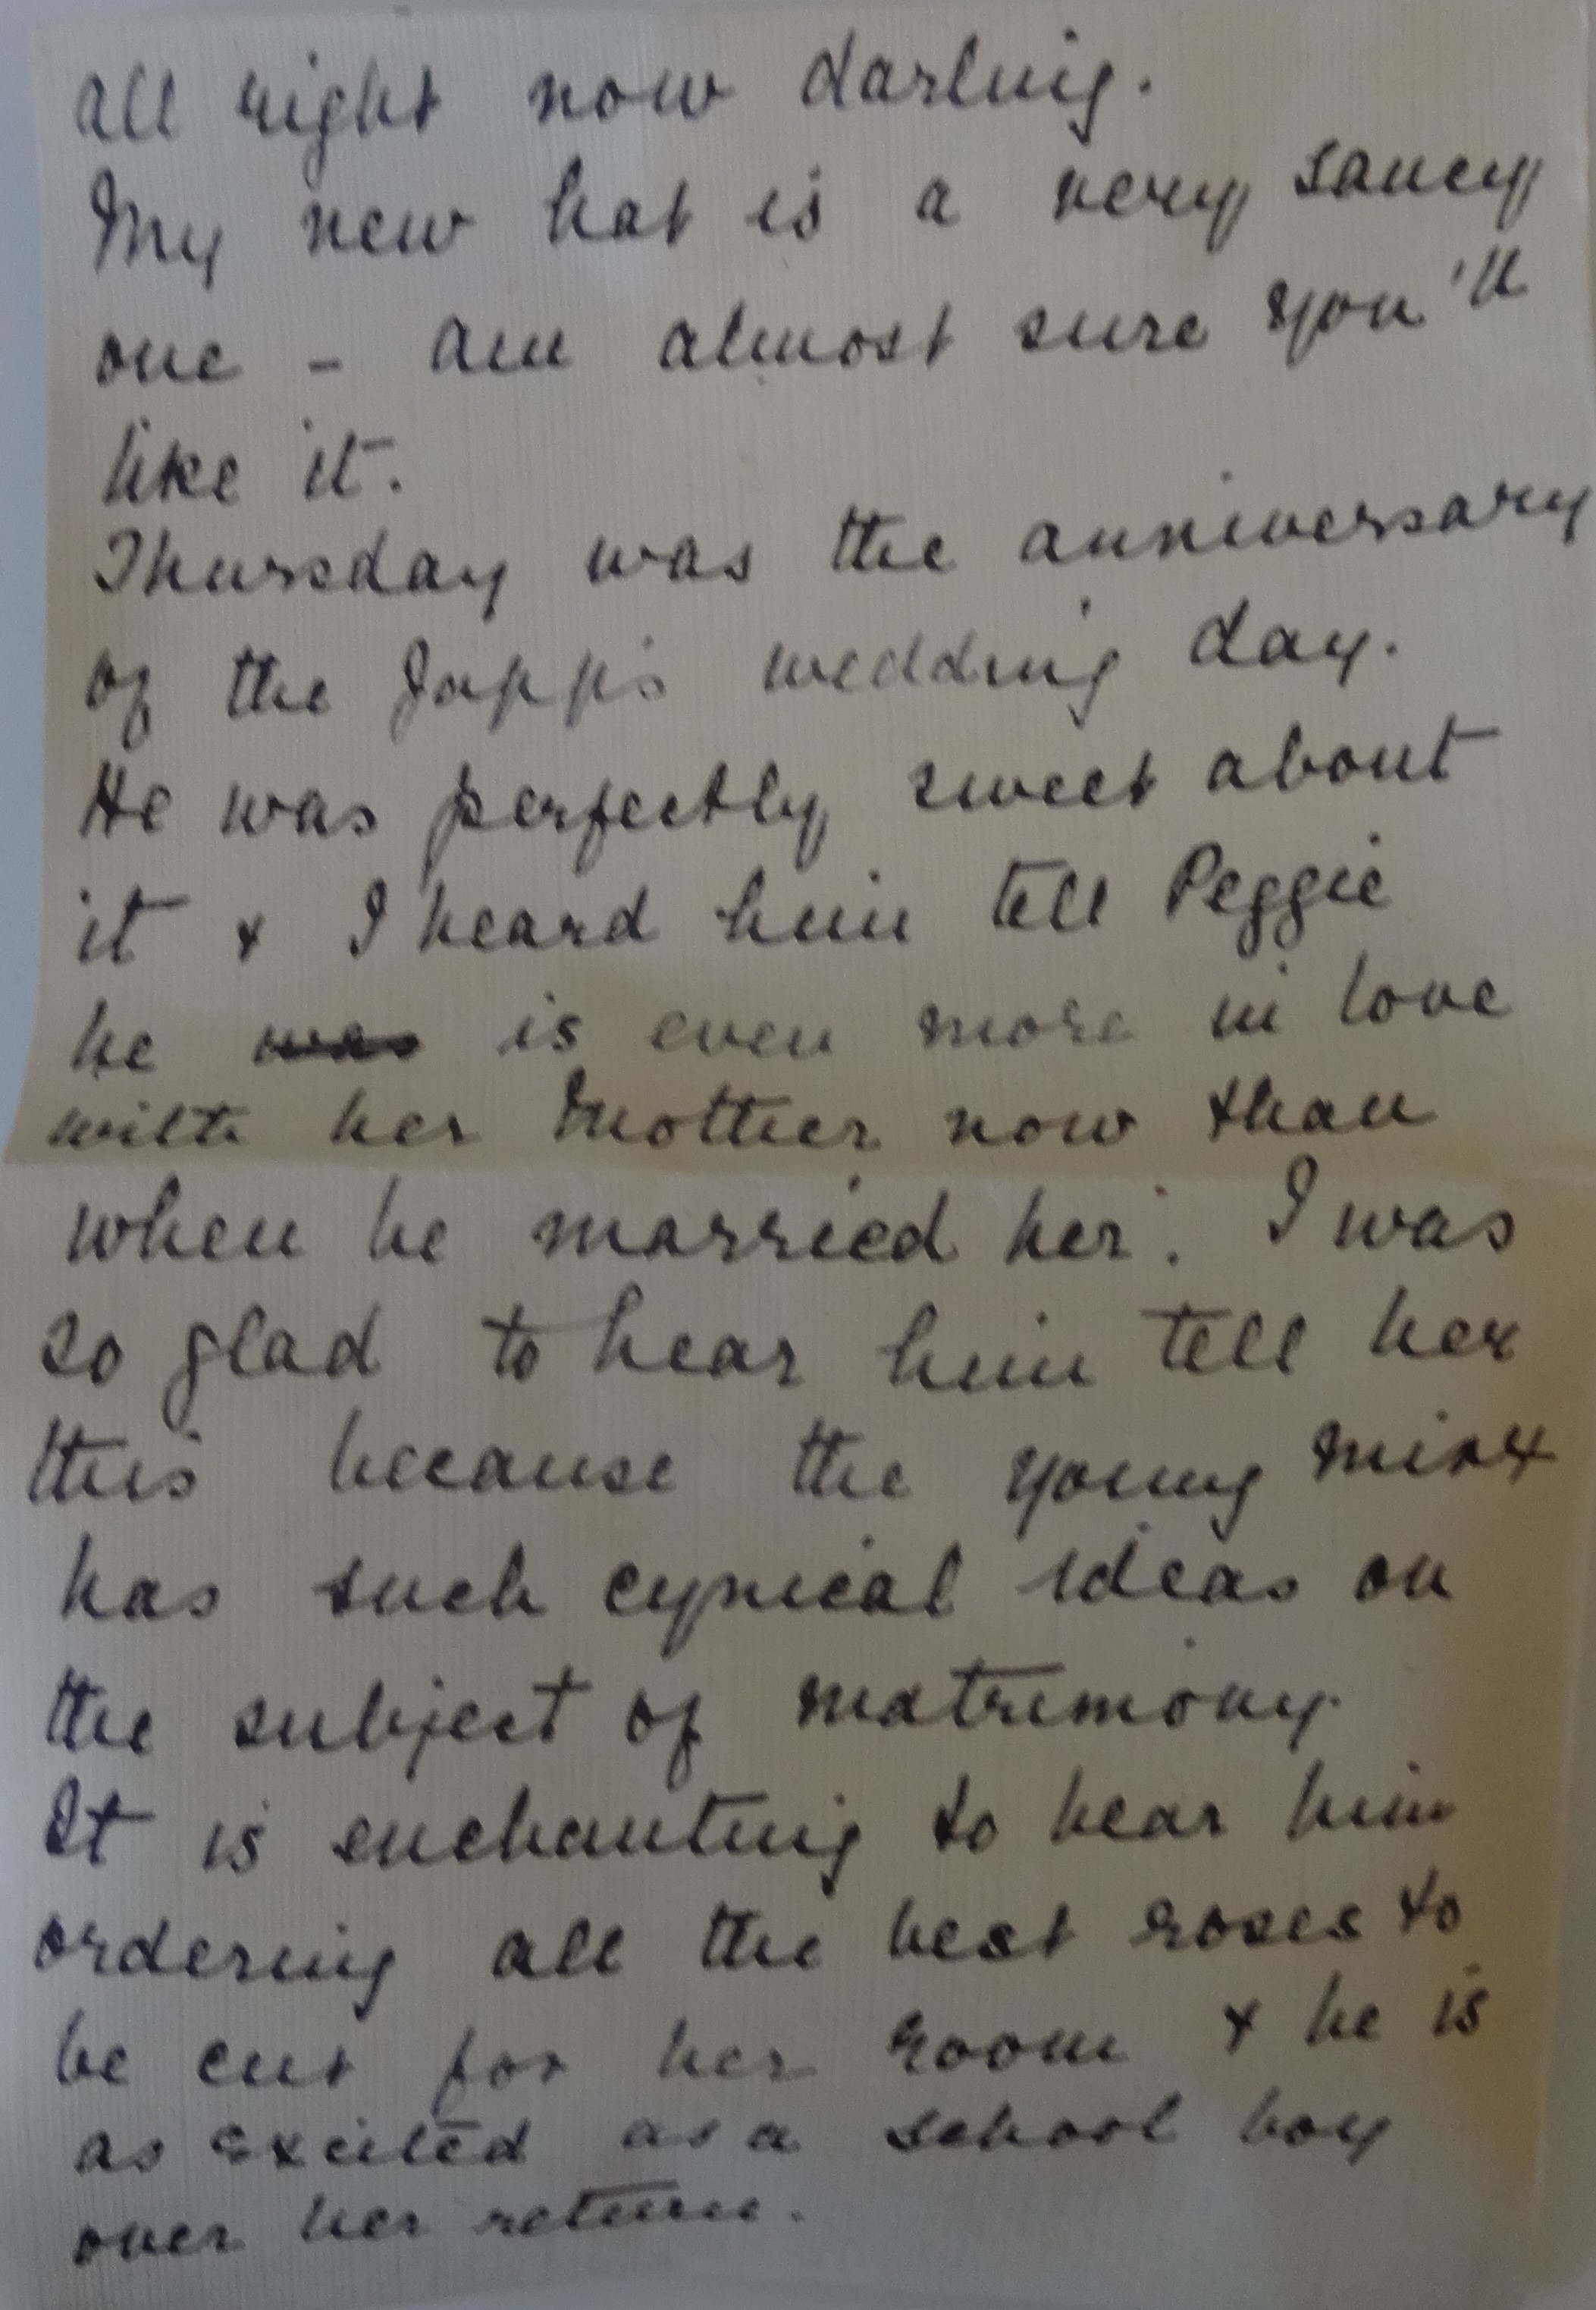 all right now darling.
My new hat is a very saucy
one - am almost sure you'll
like it.
Thursday was the anniversary
of the Japp's wedding day.
He was perfectly sweet about
it & I heard him tell Peggie
he was is even more in love
with her Mother now than
when he married her. I was
so glad to hear him tell her
this because the young minx
has such cynical ideas on
the subject of matrimony.
It is enchanting to hear him
ordering all the best roses to
be cut for her room & he is
as excited as a school boy
over her return.